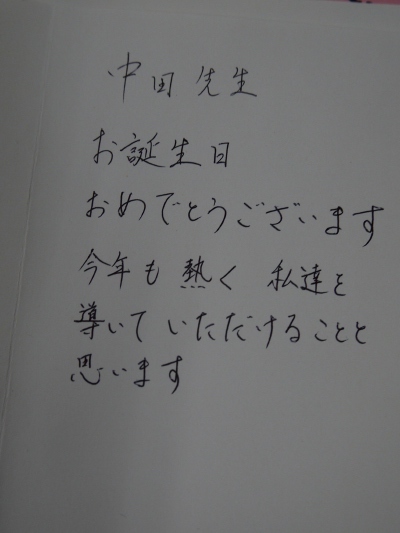 中田 先生
お誕生日
おめでとうございます
今年も 熱く 私達を
導いて いただけることと
思います